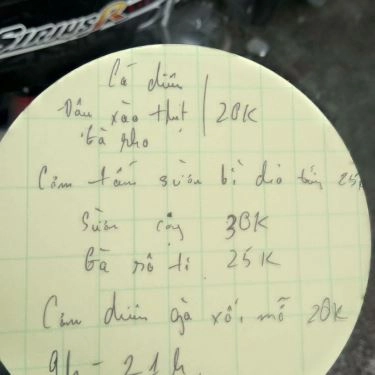 Sirius R
Cá diêu
Đậu xào thịt | 20K
Gà kho
Cơm tấm sườn bì 25K
Sườn cọng 30K
Gà rô ti 25K
Cơm chiên gà xối mỡ 20K
9h - 21h